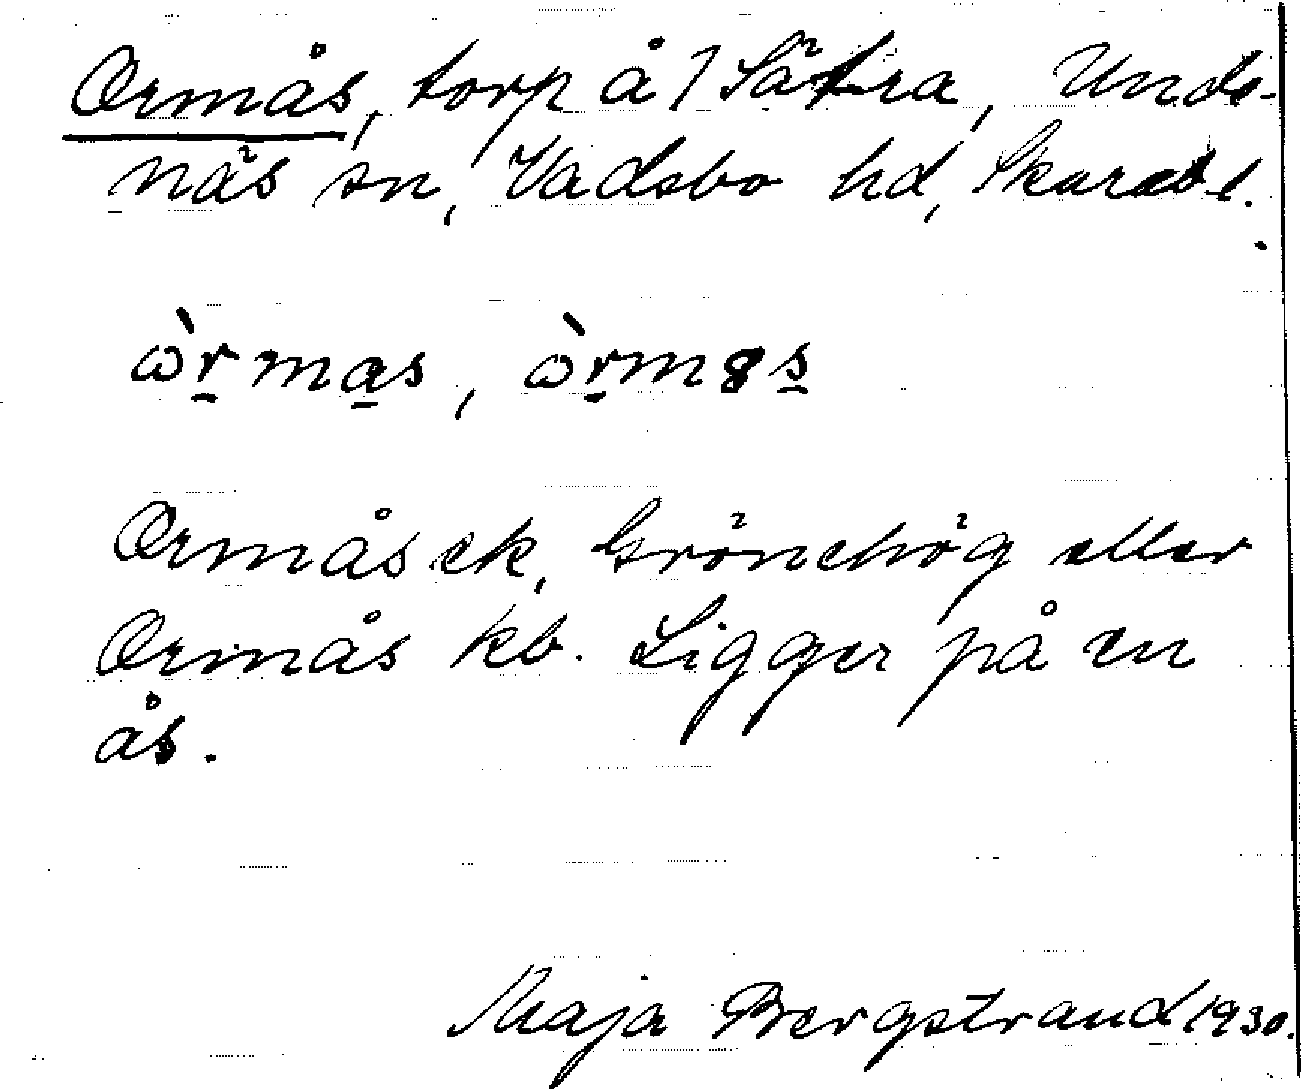 Ormås, torp å 1 Sätra, Unde-
näs sn, Vadsbo hd, Skarab. l.
ɷ̀r̠ma̠s, ɷ̀r̠məs̠
Ormås ek, Grönehög eller
Ormås kb. Ligger på en
ås.
Maja Bergstrand 1930.